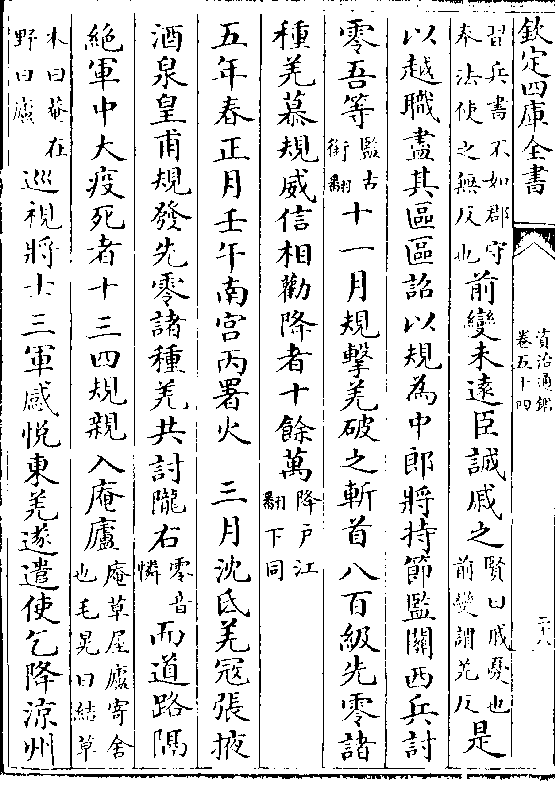 欽定四庫全書
資治通鑑
卷五十四
二十八
習兵書不如郡守
奉法使之無反也
前變未遠臣誠戚之
賢曰戚憂也
前變謂羌反
是
以越職盡其區區詔以規為中郎將持節監關西兵討
零吾等
監古
銜翻
十一月規擊羌破之斬首八百級先零諸
種羌慕規威信相勸降者十餘萬
降戶江
翻下同
五年春正月壬午南宫丙署火　三月沈氐羌寇張掖
酒泉皇甫規發先零諸種羌共討隴右
零音
憐
而道路隔
絶軍中大疫死者十三四規親入庵廬
庵草屋廬寄舍
也毛晃曰結草
木曰菴在
野曰廬
巡視將士三軍感悦東羌遂遣使乞降涼州